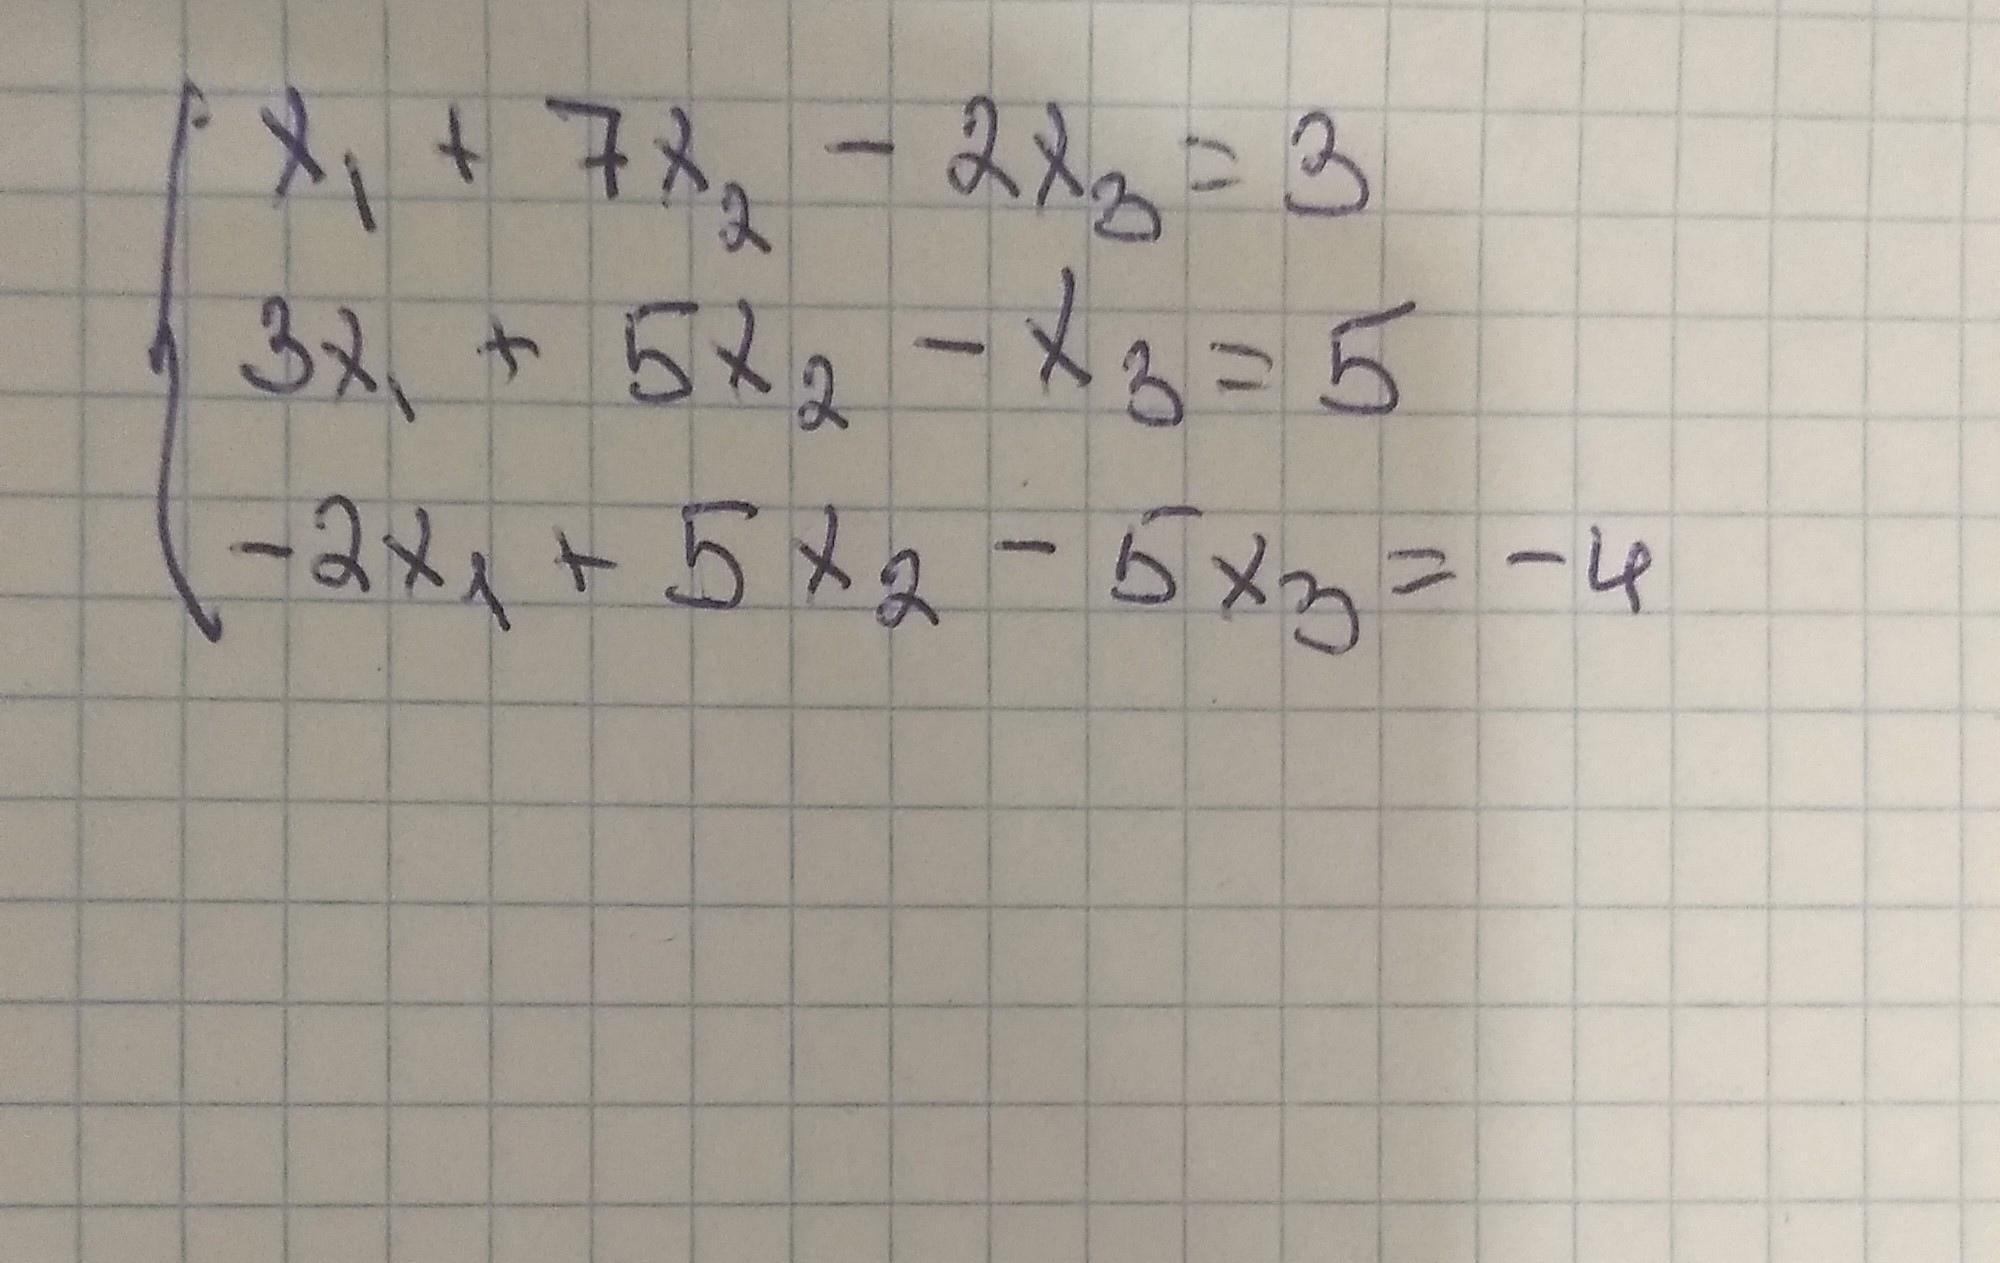 x₁ + 7x₂ - 2x₃ = 3
3x₁ + 5x₂ - x₃ = 5
-2x₁ + 5x₂ - 5x₃ = -4